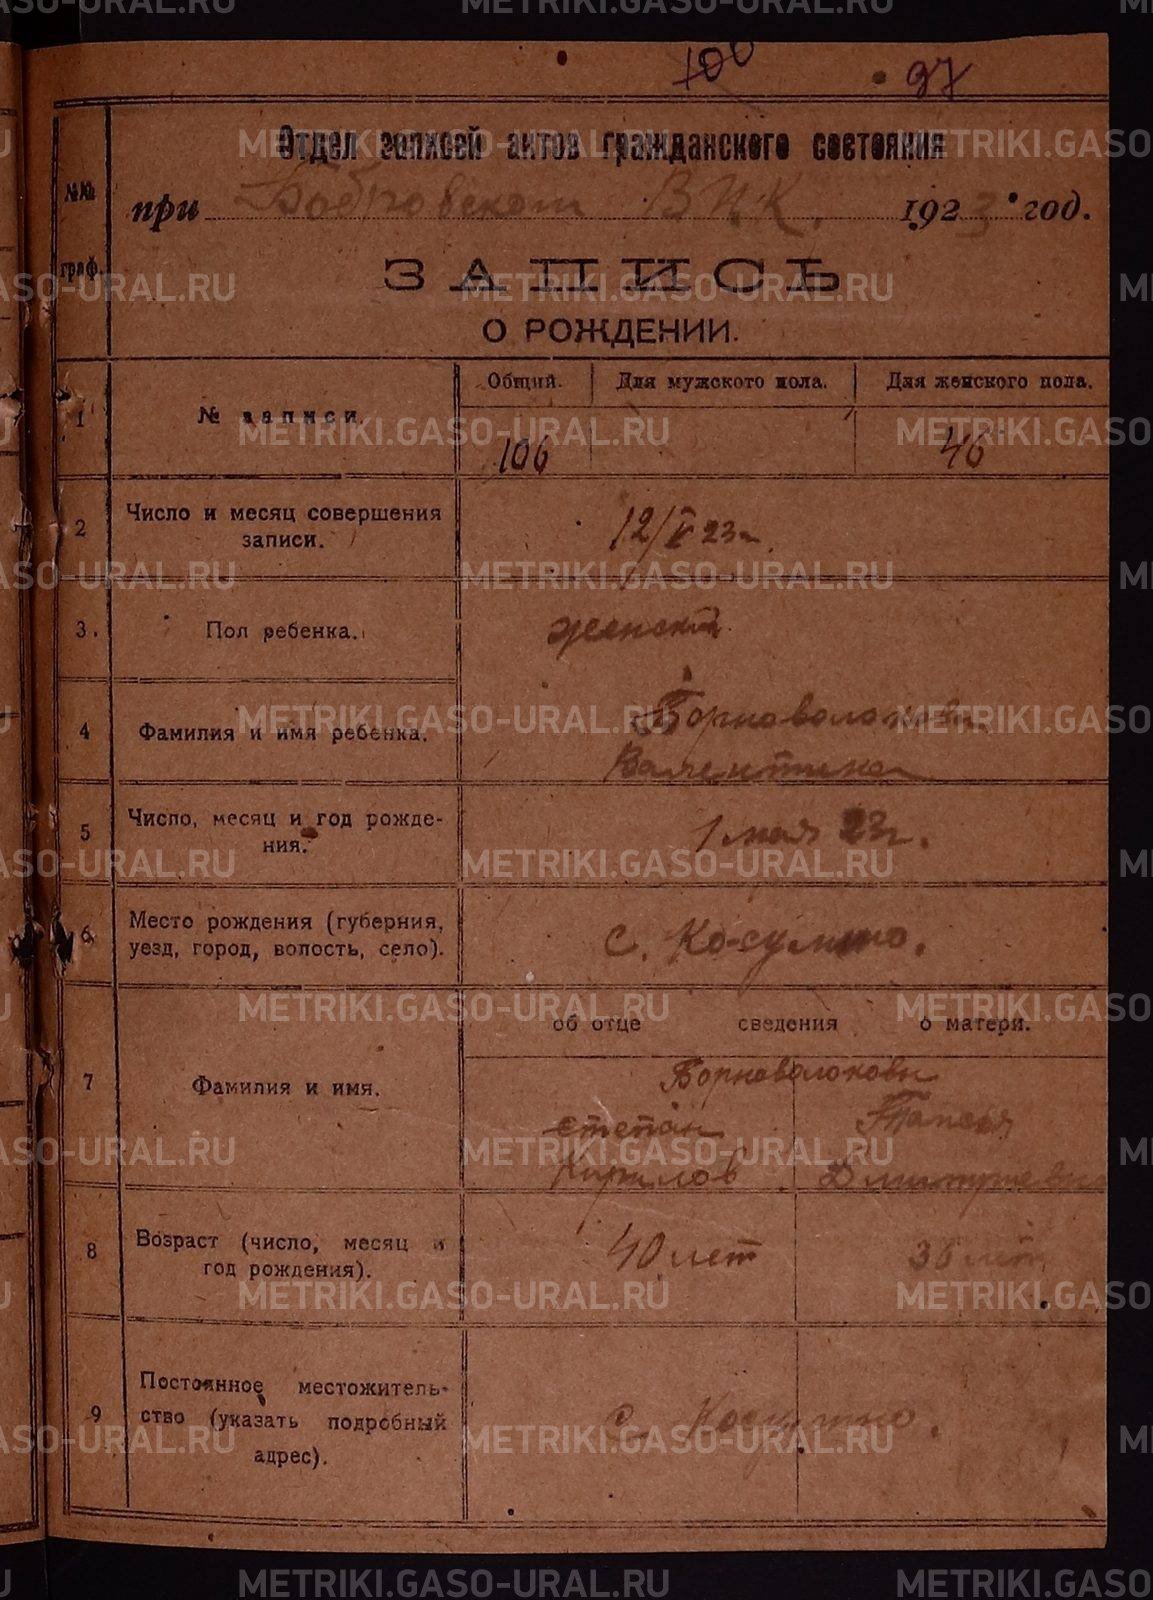 100 97
Отдел записей актов гражданского состояния
№№ при Бобровском ВИК. 1923 год.
граф. ЗАПИСЬ
О РОЖДЕНИИ.
Общий. Для мужского пола. Для женского пола.
1 № записи.
106 46
2 Число и месяц совершения
записи.
12/V 23 г.
3. Пол ребенка. женский
4 Фамилия и имя ребенка. Борноволокова
Валентина
5 Число, месяц и год рожде-
ния.
1 мая 23 г.
6 Место рождения (губерния,
уезд, город, волость, село).
с. Косулино.
об отце сведения о матери.
7 Фамилия и имя.
Борноволоковы
Степан Таисья
Кирилов Дмитриевна
8 Возраст (число, месяц и
год рождения).
40 лет 36 лет
9 Постоянное местожитель-
ство (указать подробный
адрес).
с. Косулино.
METRIKI.GASO-URAL.RU